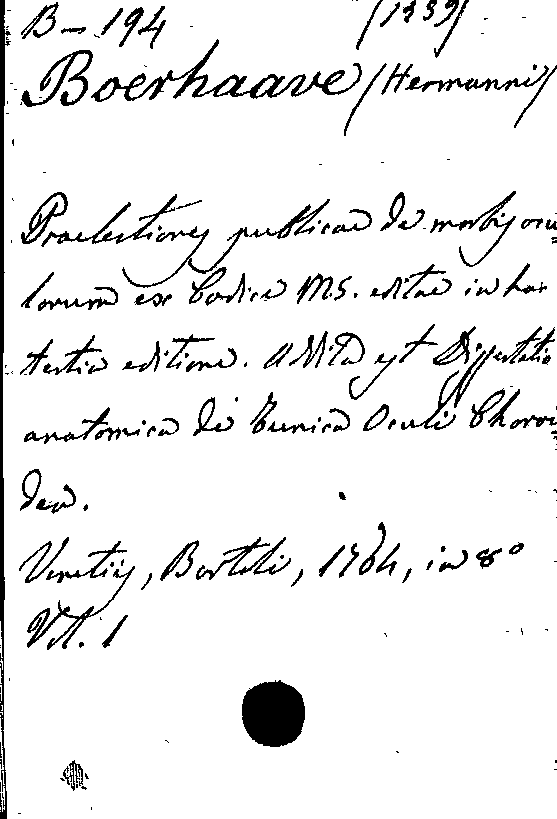 B-194 (1339)
Boerhaave (Hermanni)
Praelectiones publicae de morbis ocu=
lorum ex Codice MS. editae in hac
tertia editione. Addita est Dissertatio
anatomica de Tunica Oculi Choroi=
dea.
Venetiis, Bortoli, 1764, in 8°
Vol. 1